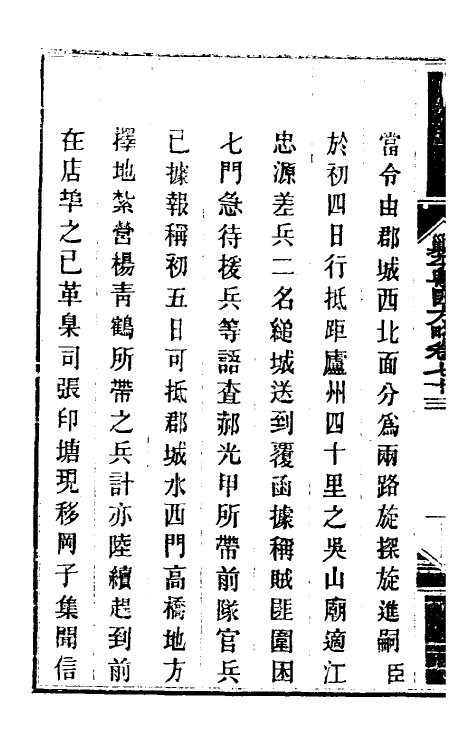 當令由郡城西北面分爲兩路旋探旋進嗣臣
於初四日行抵距廬州四十里之吳山廟適江
忠源差兵二名縋城送到覆函據稱賊匪圍困
七門急待援兵等語查郝光甲所帶前隊官兵
已據報稱初五日可抵郡城水西門高橋地方
擇地紮營楊青鶴所帶之兵計亦陸續趕到前
在店埠之已革臬司張印塘現移岡子集聞信
方略卷七十三